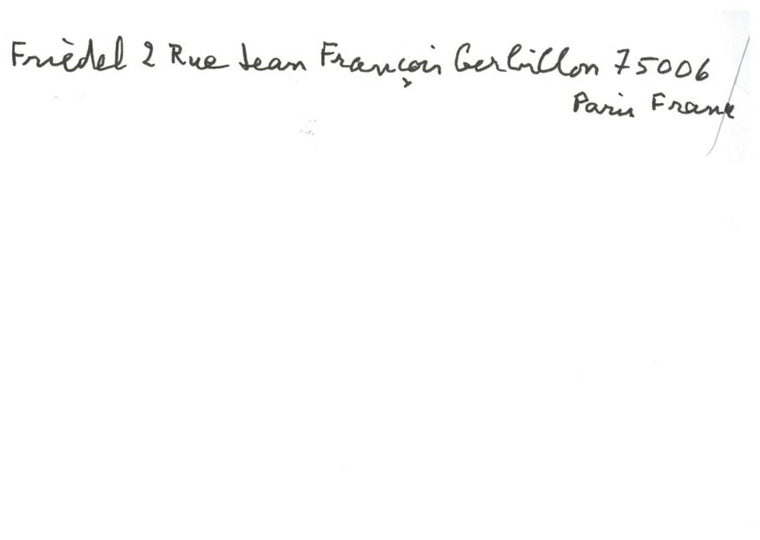 Frièdel 2 Rue Jean François Gerbillon 75006
Paris France